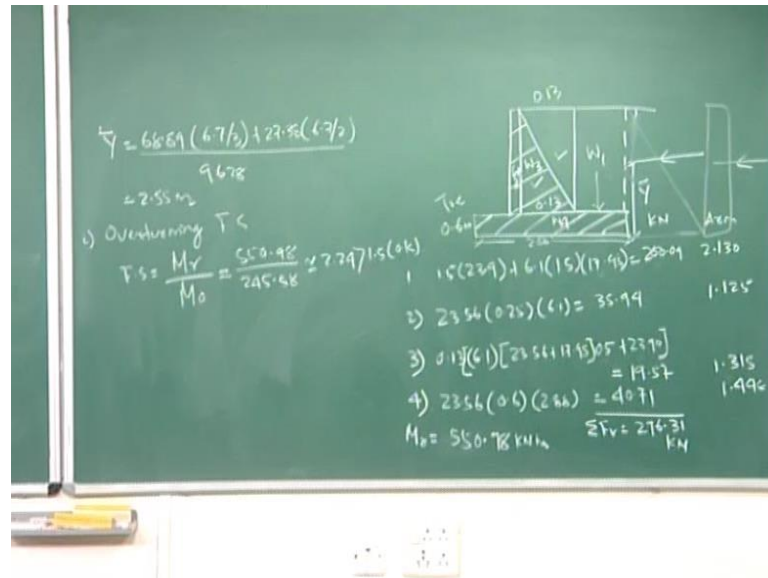 Ȳ = 68.89 (6.7/3) + 27.58 (6.7/2)
9678
= 2.55 m
Overturning
F.S = Mr / Mo = 550.98 / 245.88 ≃ 2.24 > 1.5 (OK)
0.13
W2
W1
Ȳ
0.13
Toe
0.6m
W4
KN
Arm
1 1.5(23.9) + 6.1(1.5)(17.95) = 200.09 2.130
2) 23.56 (0.25)(6.1) = 35.94 1.125
3) 0.13(6.1)[23.56+17.95]0.5 + 23.90]
= 19.57 1.315
4) 23.56 (0.6)(2.88) = 40.71 1.496
Mr = 550.98 KNm
ΣFv = 296.31
KN